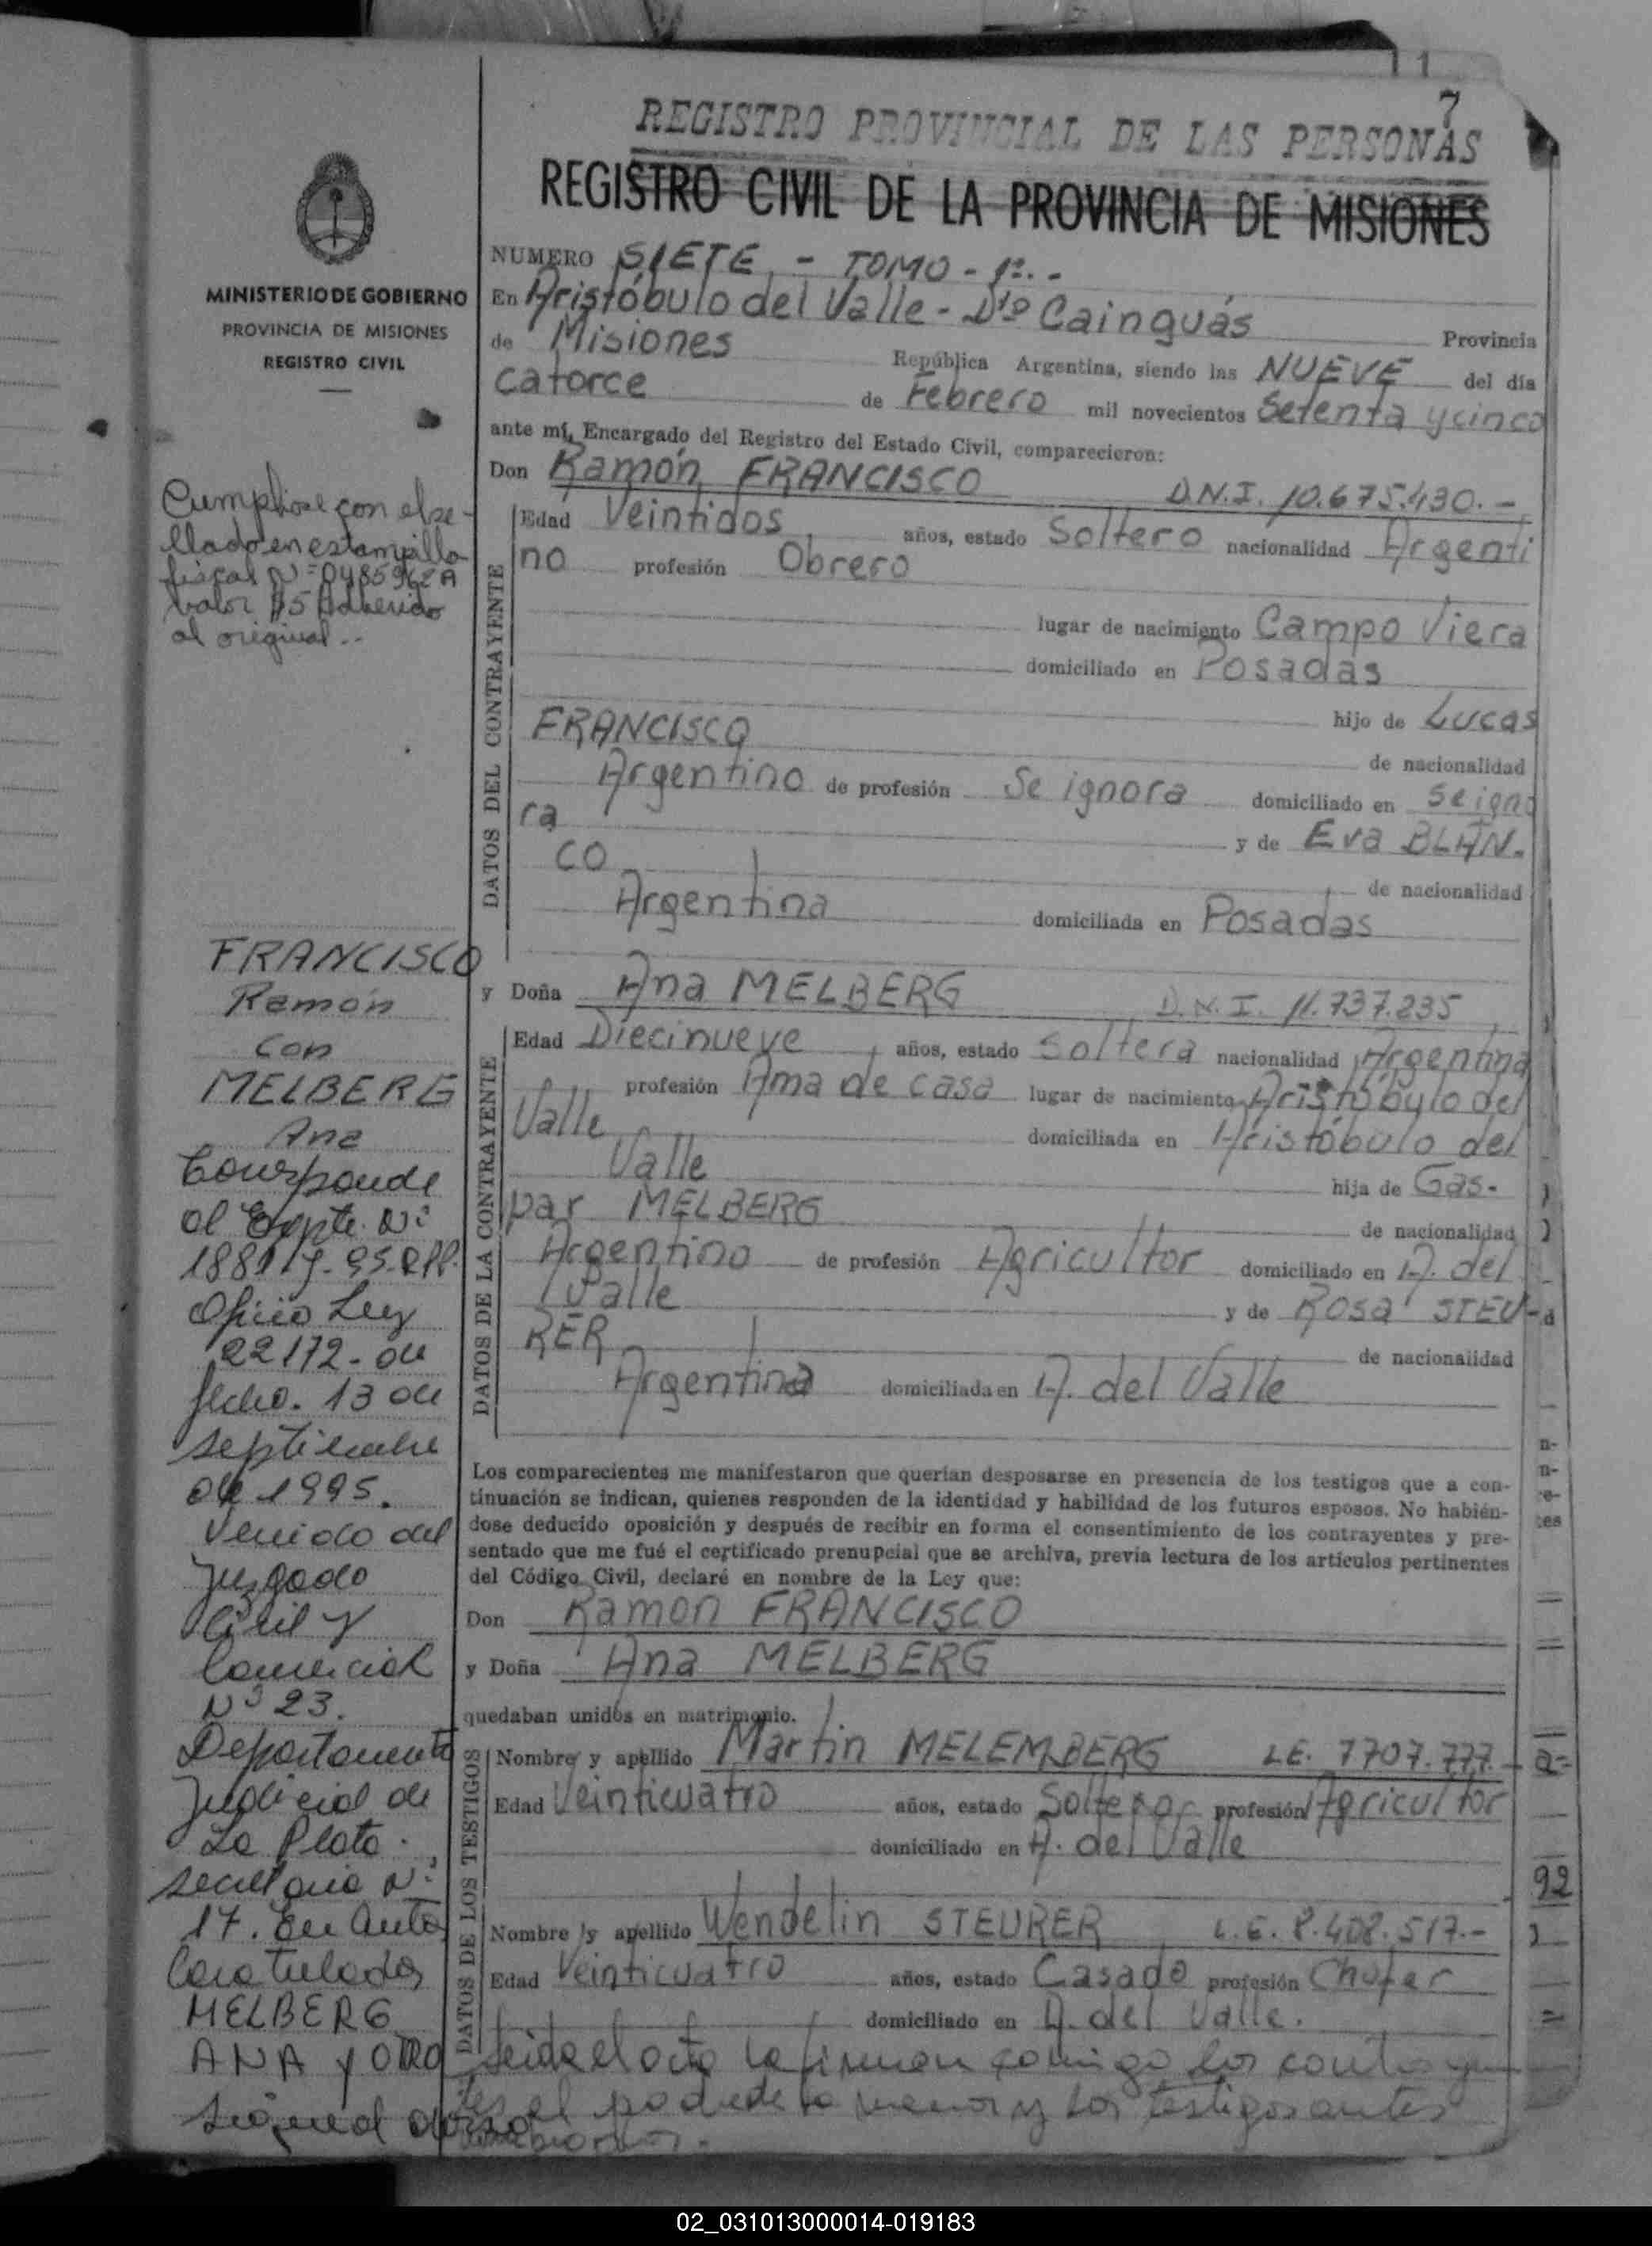 11
7
REGISTRO PROVINCIAL DE LAS PERSONAS
REGISTRO CIVIL DE LA PROVINCIA DE MISIONES
MINISTERIO DE GOBIERNO
PROVINCIA DE MISIONES
REGISTRO CIVIL
NUMERO SIETE - TOMO - 1º. -
En Aristóbulo del Valle - Dtº Cainguás Provincia
de Misiones República Argentina, siendo las NUEVE del día
catorce de Febrero mil novecientos Setenta y cinco
ante mí, Encargado del Registro del Estado Civil, comparecieron:
Don Ramón FRANCISCO D.N.I. 10.675.430.-
DATOS DEL CONTRAYENTE
Edad Veintidos años, estado Soltero nacionalidad Argenti
no profesión Obrero
lugar de nacimiento Campo Viera
domiciliado en Posadas
hijo de Lucas
FRANCISCO
de nacionalidad
Argentino de profesión Se ignora domiciliado en se igno
ra y de Eva BLAN-
CO de nacionalidad
Argentina domiciliada en Posadas
y Doña Ana MELBERG D.N.I. 11.737.235
DATOS DE LA CONTRAYENTE
Edad Diecinueve años, estado Soltera nacionalidad Argentina
profesión Ama de casa lugar de nacimiento Aristóbulo del
Valle domiciliada en Aristóbulo del
Valle hija de Gas-
par MELBERG de nacionalidad
Argentino de profesión Agricultor domiciliado en A. del
Valle y de Rosa STEU-
RER de nacionalidad
Argentina domiciliada en A. del Valle
Los comparecientes me manifestaron que querían desposarse en presencia de los testigos que a con-
tinuación se indican, quienes responden de la identidad y habilidad de los futuros esposos. No habién-
dose deducido oposición y después de recibir en forma el consentimiento de los contrayentes y pre-
sentado que me fué el certificado prenupcial que se archiva, previa lectura de los artículos pertinentes
del Código Civil, declaré en nombre de la Ley que:
Don Ramón FRANCISCO
y Doña Ana MELBERG
quedaban unidos en matrimonio.
DATOS DE LOS TESTIGOS
Nombre y apellido Martin MELEMBERG L.E. 7707.777.-
Edad Veinticuatro años, estado Soltero profesión Agricultor
domiciliado en A. del Valle
Nombre y apellido Wendelin STEURER L.E. 8.408.517.-
Edad Veinticuatro años, estado Casado profesión Chofer
domiciliado en A. del Valle.
Leida el acta la firman conmigo los contrayen
tes el padre de la menor y los testigos antes
Cumplióse con el se-
llado en estampilla
fiscal Nº 0485962A
valor $5 Adherido
al original.-
FRANCISCO
Ramón
con
MELBERG
Ana
Corresponde
al Expte. Nº
Oficio Ley
22172 - de
fecha. 13 de
septiembre
de 1995.
Venido del
Juzgado
Civil y
Comercial
Nº 23.
Departamento
Judicial de
La Plata.
secretaria Nº
17. En autos
Caratulados
MELBERG
ANA y OTRO
92
02_031013000014-019183